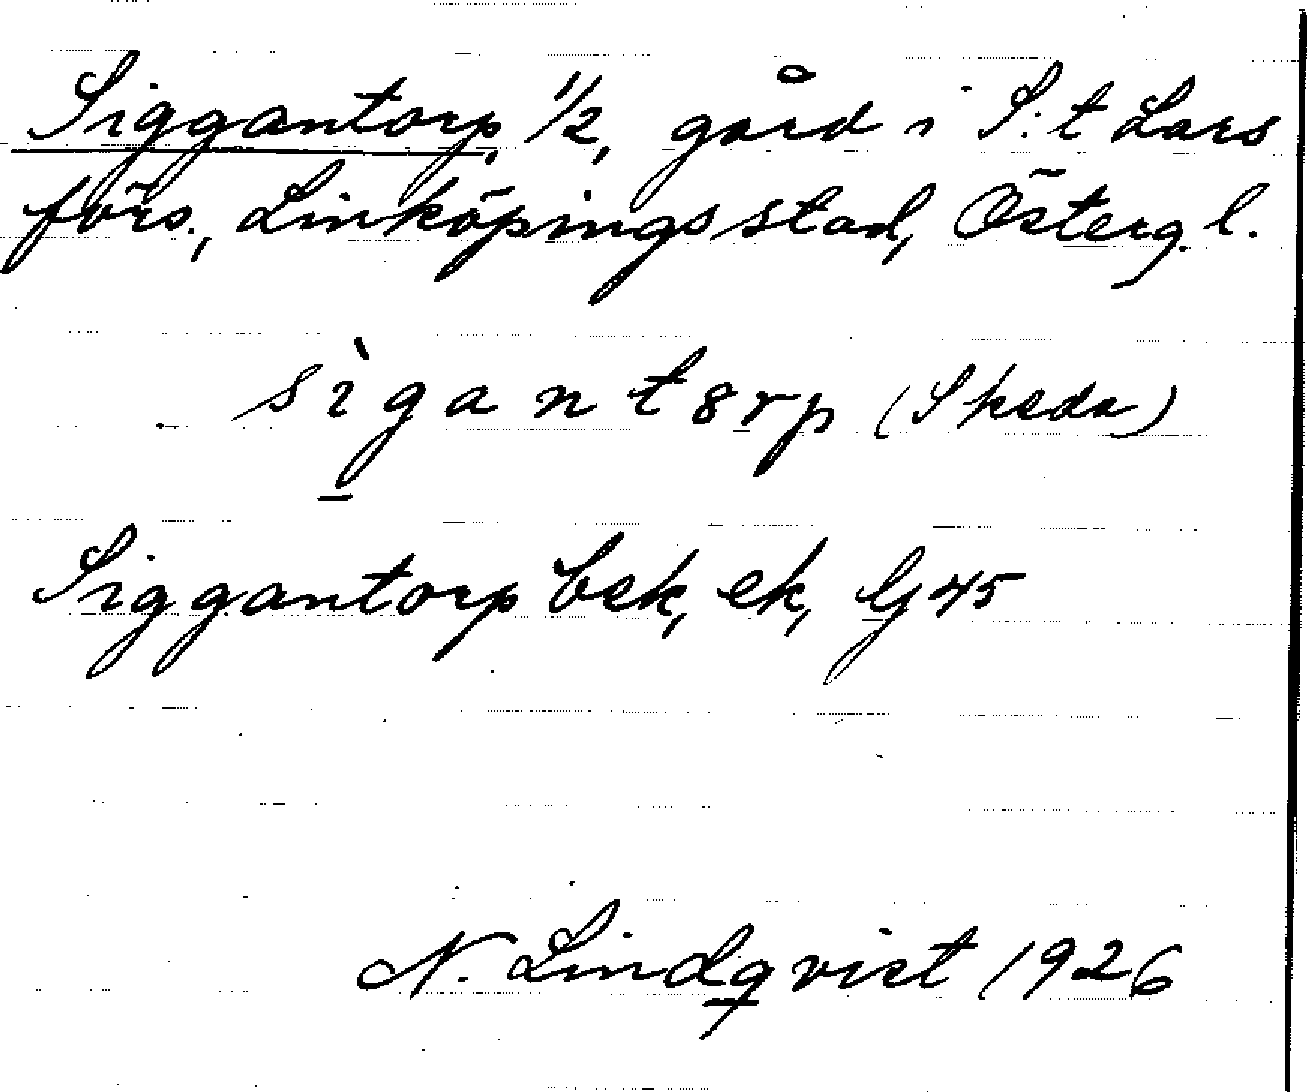 Siggantorp, 1/2, gård i S:t Lars
förs., Linköpings stad, Österg. l.
sìgantȣrp (Skeda)
Siggantorp bek, ek, Gj 45
N. Lindqvist 1926